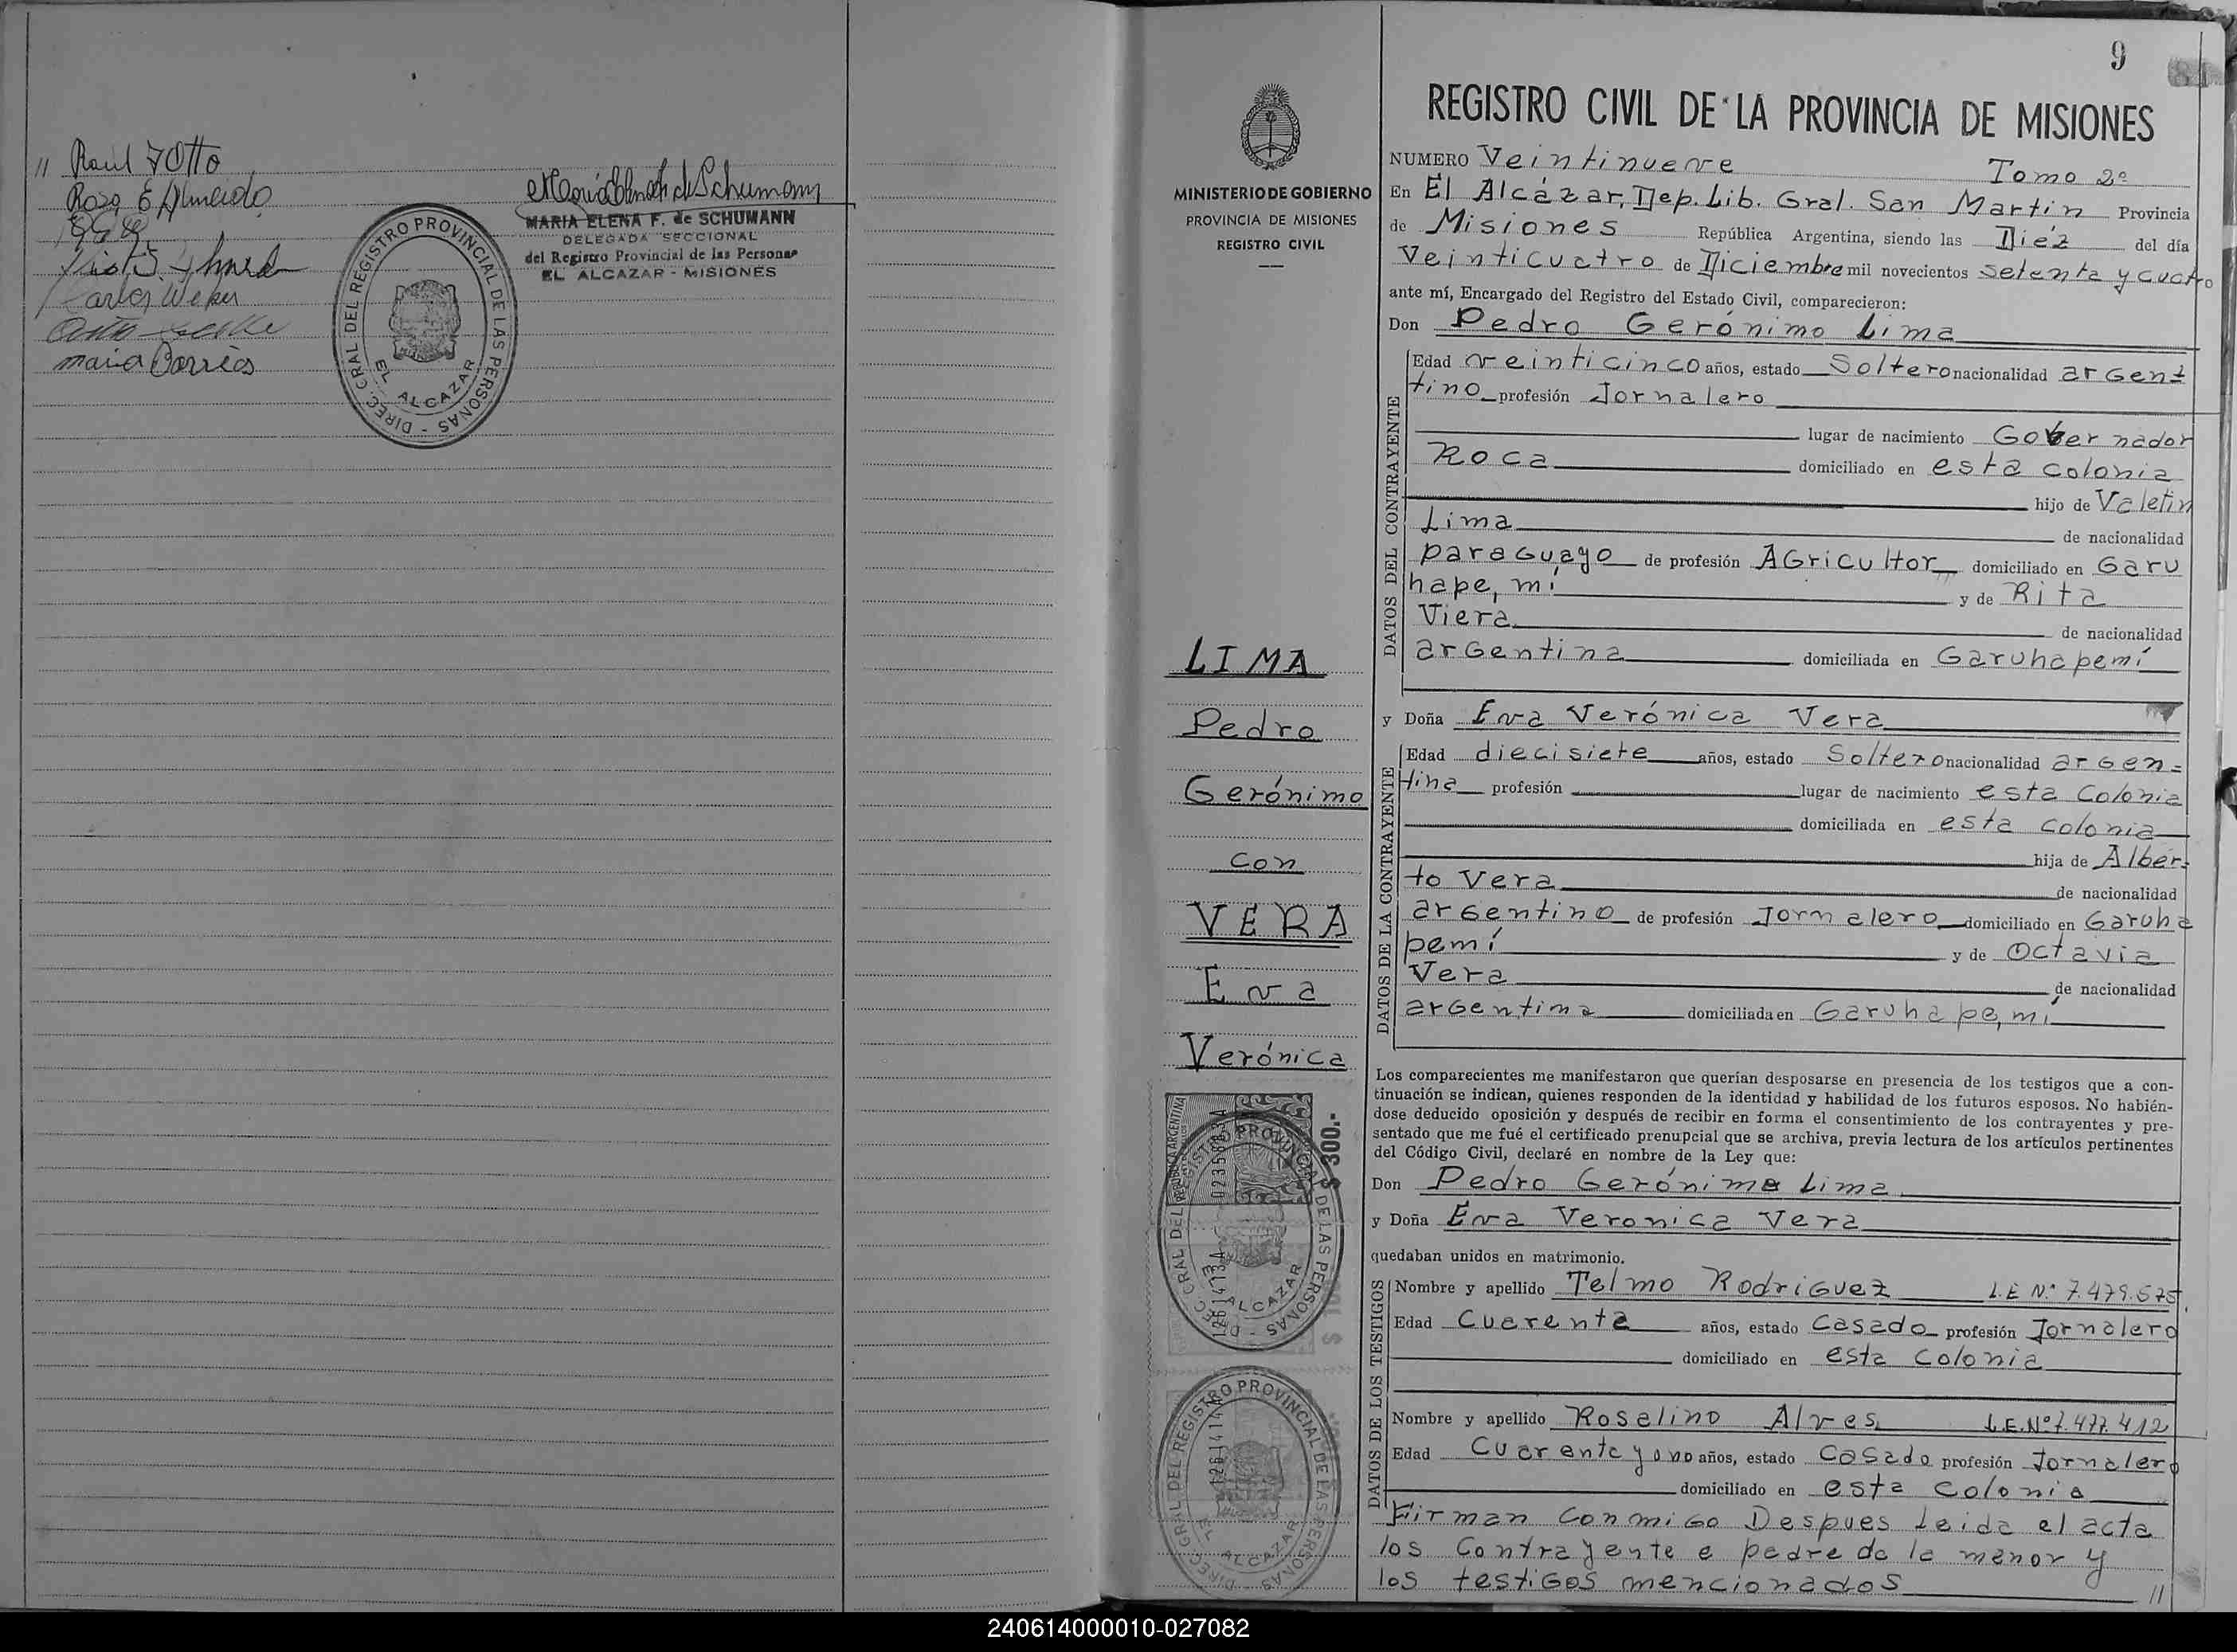 // Raul J Otto
Rosa E Almeida
Carlos Weker
maria Barrios
MARIA ELENA F. de SCHUMANN
DELEGADA SECCIONAL
del Registro Provincial de las Personas
EL ALCAZAR - MISIONES
DIREC. GRAL DEL REGISTRO PROVINCIAL DE LAS PERSONAS -
EL ALCAZAR
9
MINISTERIO DE GOBIERNO
PROVINCIA DE MISIONES
REGISTRO CIVIL
LIMA
Pedro
Gerónimo
con
VERA
Eva
Verónica
REPUBLICA ARGENTINA
$ 300.-
DIREC. GRAL DEL REGISTRO PROVINCIAL DE LAS PERSONAS -
EL ALCAZAR
DIREC. GRAL DEL REGISTRO PROVINCIAL DE LAS PERSONAS
EL ALCAZAR
REGISTRO CIVIL DE LA PROVINCIA DE MISIONES
NUMERO Veintinueve Tomo 2º
En El Alcázar, Dep. Lib. Gral. San Martín Provincia
de Misiones República Argentina, siendo las Diéz del día
Veinticuatro de Diciembre mil novecientos setenta y cuatro
ante mí, Encargado del Registro del Estado Civil, comparecieron:
Don Pedro Gerónimo Lima
DATOS DEL CONTRAYENTE
Edad veinticinco años, estado Soltero nacionalidad argen=
tino profesión Jornalero
lugar de nacimiento Gobernador
Roca domiciliado en esta colonia
hijo de Valetin
Lima de nacionalidad
paraguayo de profesión Agricultor domiciliado en Garu
hape, mí y de Rita
Viera de nacionalidad
argentina domiciliada en Garuhapemí
y Doña Eva Verónica Vera
DATOS DE LA CONTRAYENTE
Edad diecisiete años, estado Soltero nacionalidad argen=
tina profesión lugar de nacimiento esta Colonia
domiciliada en esta colonia
hija de Alber=
to Vera de nacionalidad
argentino de profesión Jornalero domiciliado en Garuha
pemí y de Octavia
Vera de nacionalidad
argentina domiciliada en Garuhape, mí
Los comparecientes me manifestaron que querían desposarse en presencia de los testigos que a con-
tinuación se indican, quienes responden de la identidad y habilidad de los futuros esposos. No habién-
dose deducido oposición y después de recibir en forma el consentimiento de los contrayentes y pre-
sentado que me fué el certificado prenupcial que se archiva, previa lectura de los artículos pertinentes
del Código Civil, declaré en nombre de la Ley que:
Don Pedro Gerónimo Lima
y Doña Eva Veronica Vera
quedaban unidos en matrimonio.
DATOS DE LOS TESTIGOS
Nombre y apellido Telmo Rodriguez L.E Nº 7.479.575
Edad Cuarenta años, estado Casado profesión Jornalero
domiciliado en esta Colonia
Nombre y apellido Roselino Alves L.E.Nº 7.477.412
Edad Cuarenta y uno años, estado Casado profesión Jornalero
domiciliado en esta Colonia
Firman Conmigo Despues Leida el acta
los Contrayente e padre de la menor y
los testigos mencionados //
240614000010-027082